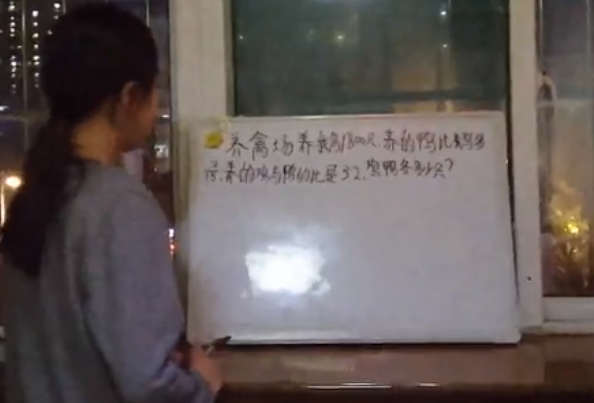 养禽场养鹅1800只,养的鸭比鹅多
养的鸡与鸭的比是3:2,鸡鸭各多少只?